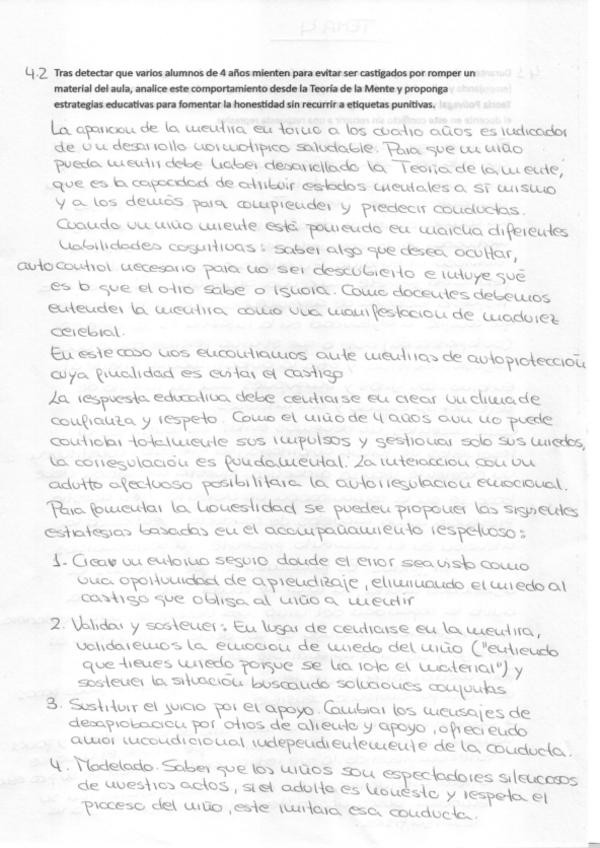 4.2 Tras detectar que varios alumnos de 4 años mienten para evitar ser castigados por romper un
material del aula, analice este comportamiento desde la Teoría de la Mente y proponga
estrategias educativas para fomentar la honestidad sin recurrir a etiquetas punitivas.
La aparicion de la mentira en torno a los cuatro años es indicador
de un desarrollo normotípico saludable. Para que un niño
pueda mentir debe haber desarrollado la Teoría de la mente,
que es la capacidad de atribuir estados mentales a sí mismo
y a los demás para comprender y predecir conductas.
Cuando un niño miente está poniendo en marcha diferentes
habilidades cognitivas: saber algo que desea ocultar,
autocontrol necesario para no ser descubierto e intuye qué
es lo que el otro sabe o ignora. Como docentes debemos
entender la mentira como una manifestación de madurez
cerebral.
En este caso nos encontramos ante mentiras de autoprotección
cuya finalidad es evitar el castigo
La respuesta educativa debe centrarse en crear un clima de
confianza y respeto. Como el niño de 4 años aun no puede
controlar totalmente sus impulsos y gestionar solo sus miedos,
la corregulación es fundamental. La interaccion con un
adulto afectuoso posibilitara la autorregulacion emocional.
Para fomentar la honestidad se pueden proponer las siguientes
estrategias basadas en el acompañamiento respetuoso:
1. Crear un entorno seguro donde el error sea visto como
una oportunidad de aprendizaje, eliminando el miedo al
castigo que obliga al niño a mentir
2. Validar y sostener: En lugar de centrarse en la mentira,
validaremos la emocion de miedo del niño ("entiendo
que tienes miedo porque se ha roto el material") y
sostener la situación buscando soluciones conjuntas
3. Sustituir el juicio por el apoyo. Cambiar los mensajes de
desaprobacion por otros de aliento y apoyo, ofreciendo
amor incondicional independientemente de la conducta.
4. Modelado. Saber que los niños son espectadores silenciosos
de nuestros actos, si el adulto es honesto y respeta el
proceso del niño, este imitara esa conducta.